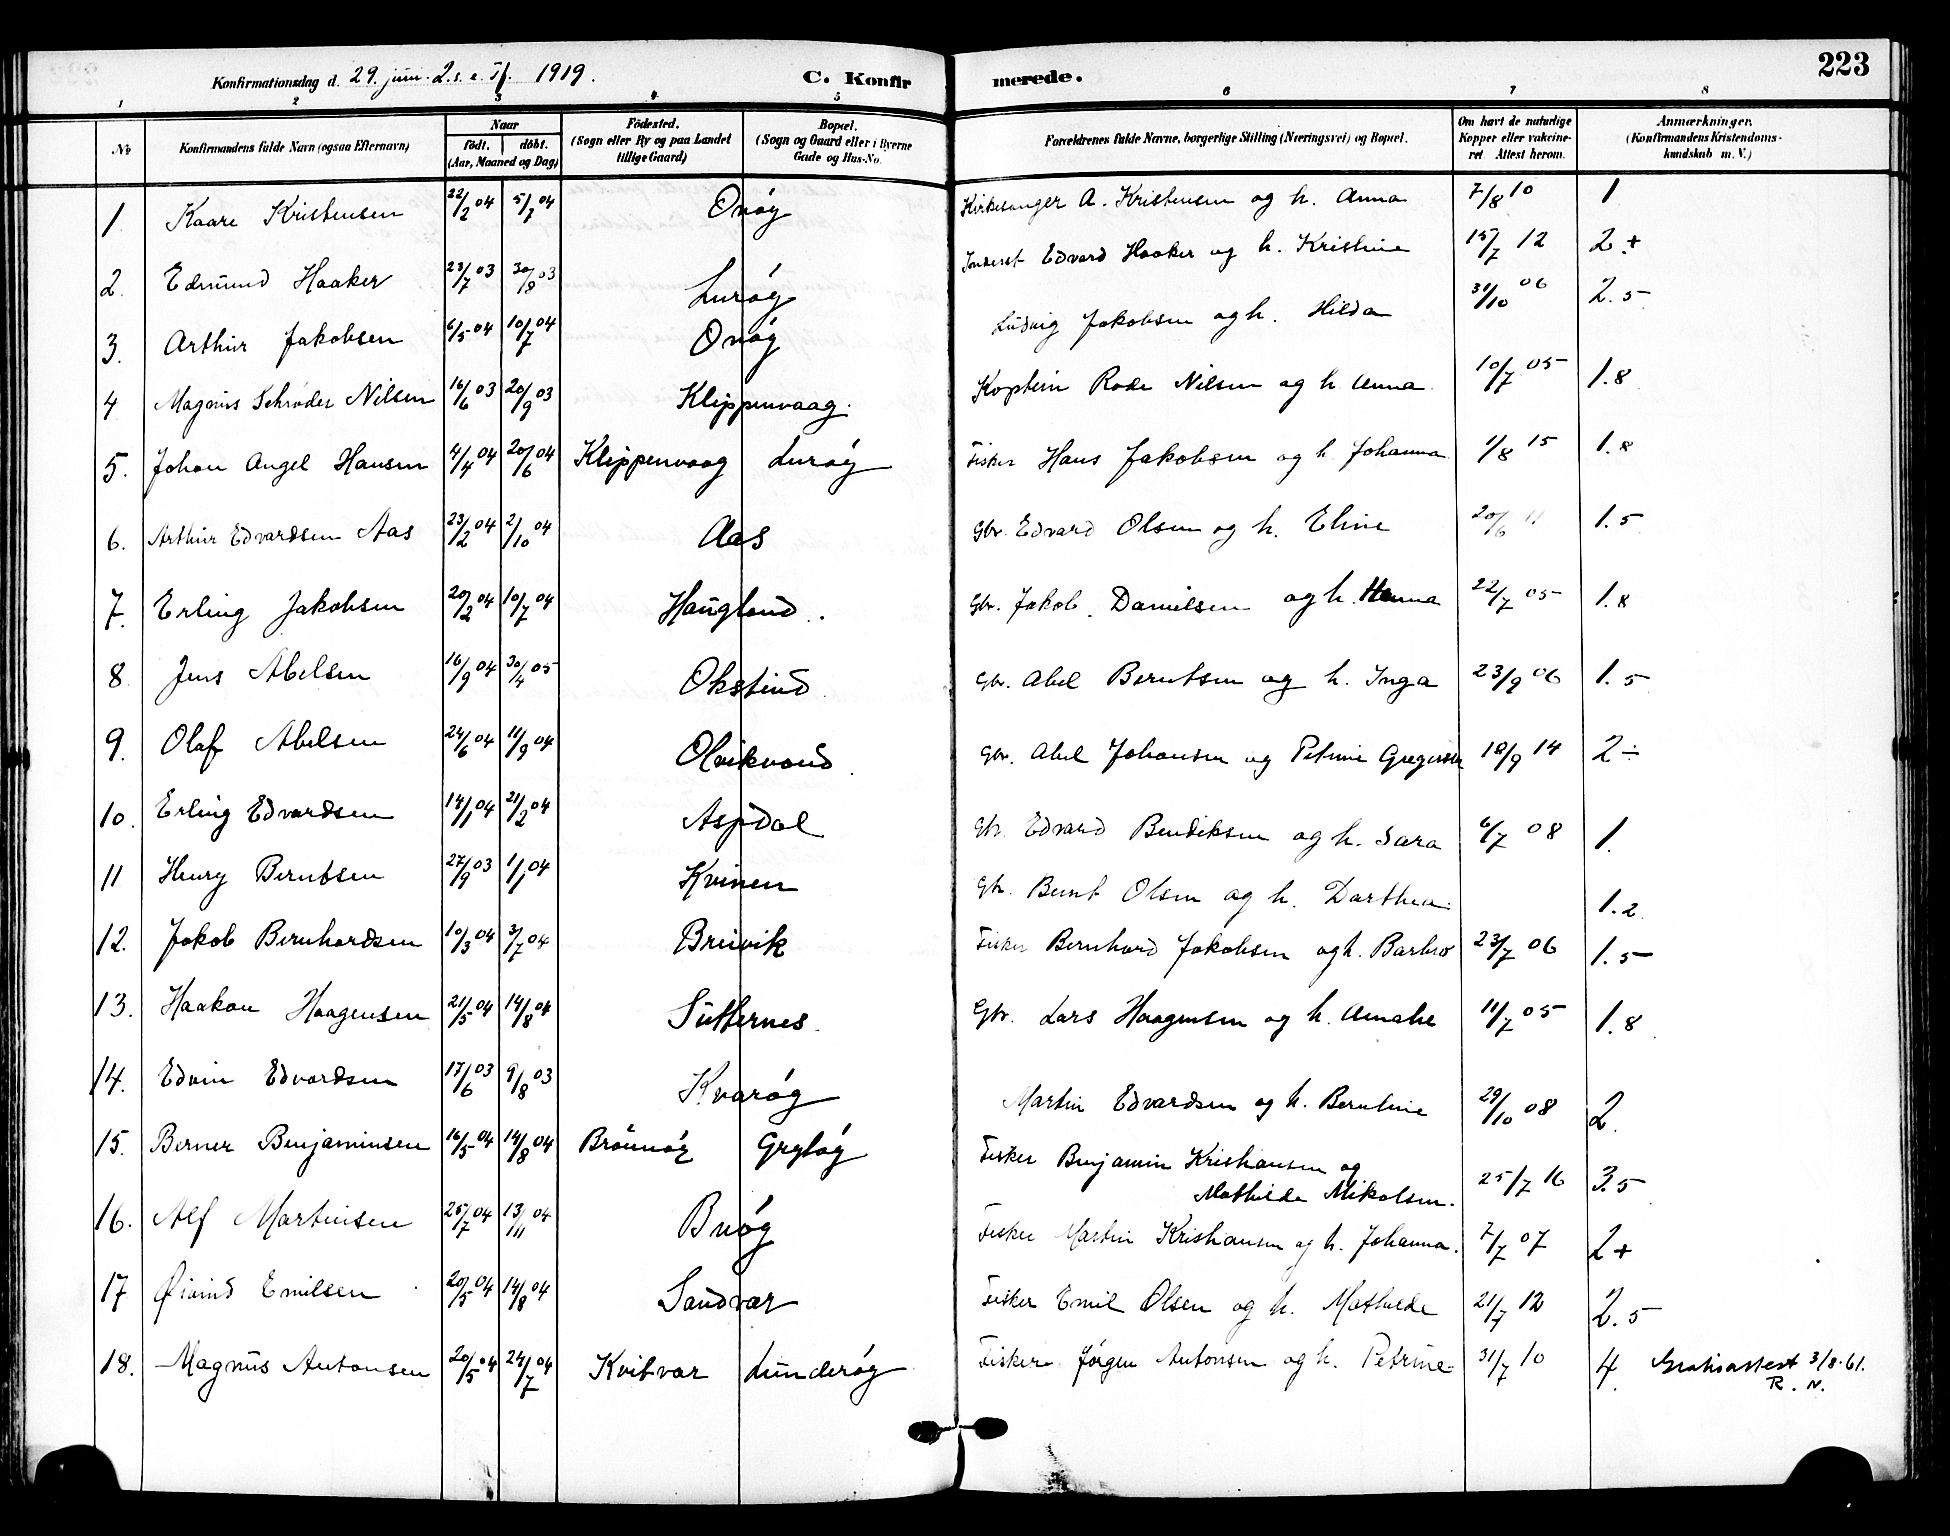 Konfirmationsdag d. 29. juni. 2. s. e. Tf. 1919. C. Konfirmerede. 223
1 2 3 4 5 6 7 8
No Konfirmandens fulde Navn (ogsaa Efternavn) Naar født. døbt. (Aar, Maaned og Dag) Fødested. (Sogn eller By og paa Landet tillige Gaard) Bopæl. (Sogn og Gaard eller i Byerne Gade og Hus-No. Forældrenes fulde Navne, borgerlige Stilling (Næringsvei) og Bopæl. Om havt de naturlige Kopper eller vakcineret. Attest herom. Anmærkninger. (Konfirmandens Kristendomskundskab m. V.)
1. Kaare Kristensen 22/2 04 5/7 04 Onøy Kirkesanger A. Kristensen og h. Anna 7/8 10 1
2. Edmund Haaker 23/7 03 30/8 03 Lurøy Edvard Haaker og h. Kristine 15/7 12 2 +
3. Arthur Jakobsen 6/5 04 10/7 04 Onøy Ludvig Jakobsen og h. Hilda 31/10 06 2.5
4 Magnus Schrøder Nilsen 16/6 03 20/9 03 Klippenvaag. Koptein Rode Nilsen og h Anna 10/7 05 1.8
5. Johan Angel Hansen 4/4 04 20/6 04 Klippenvaag Lurøy Fisker Hans Jakobsen og h. Johanna 1/8 15 1.8
6. Arthur Edvardsen Aas 23/2 04 2/10 04 Aas Gbr. Edvard Olsen og h. Eline 20/6 11 1.5
7. Erling Jakobsen 20/2 04 10/7 04 Haugland. Gbr. Jakob Danielsen og h. Hanna 22/7 05 1.8
8 Jens Abelsen 16/9 04 30/4 05 Okstind Gbr. Abel Berntsen og h. Inga 23/9 06 1.5
9. Olaf Abelsen 24/6 04 11/9 04 Olvikvand Gbr. Abel Johansen og Petrine Gregersen 18/9 14 2 ÷
10. Erling Edvardsen 14/1 04 21/2 04 Aspdal Gbr. Edvard Bendiksen og h. Sara 6/7 08 1.
11 Henry Berntsen 27/9 03 1/1 04 Kvinen Gbr. Bernt Olsen og h. Darthea. 1.2
12. Jakob Bernhardsen 10/3 04 3/7 04 Breivik Fisker Bernhard Jakobsen og h. Barbro 23/7 06 1.5
13. Haakon Haagensen 21/5 04 14/8 04 Sütternes Gbr. Lars Haagensen og h. Amalie 11/7 05 1.8
14. Edvin Edvardsen 17/6 03 9/8 03 Kvarøy Martin Edvardsen og h. Berntine 29/10 08 2.
15. Berner Benjaminsen 16/5 04 14/8 04 Brønnøy Grytøy Fisker Benjamin Kristiansen og
Mathilde Mikalsen. 25/7 16 3.5
16. Alf Martinsen 25/7 04 13/11 04 Buøy Fisker Martin Kristiansen og h. Johanna. 7/7 07 2 +
17 Øivind Emilsen 20/5 04 14/8 04 Sandvær Fisker Emil Olsen og h. Mathilde 21/7 12 2.5
18. Magnus Antonsen 20/5 04 24/7 04 Kvitvar Lunderøy Fisker Jørgen Antonsen og h. Petrine 31/7 10 4. Gratisattest 3/8-61.
R. N.